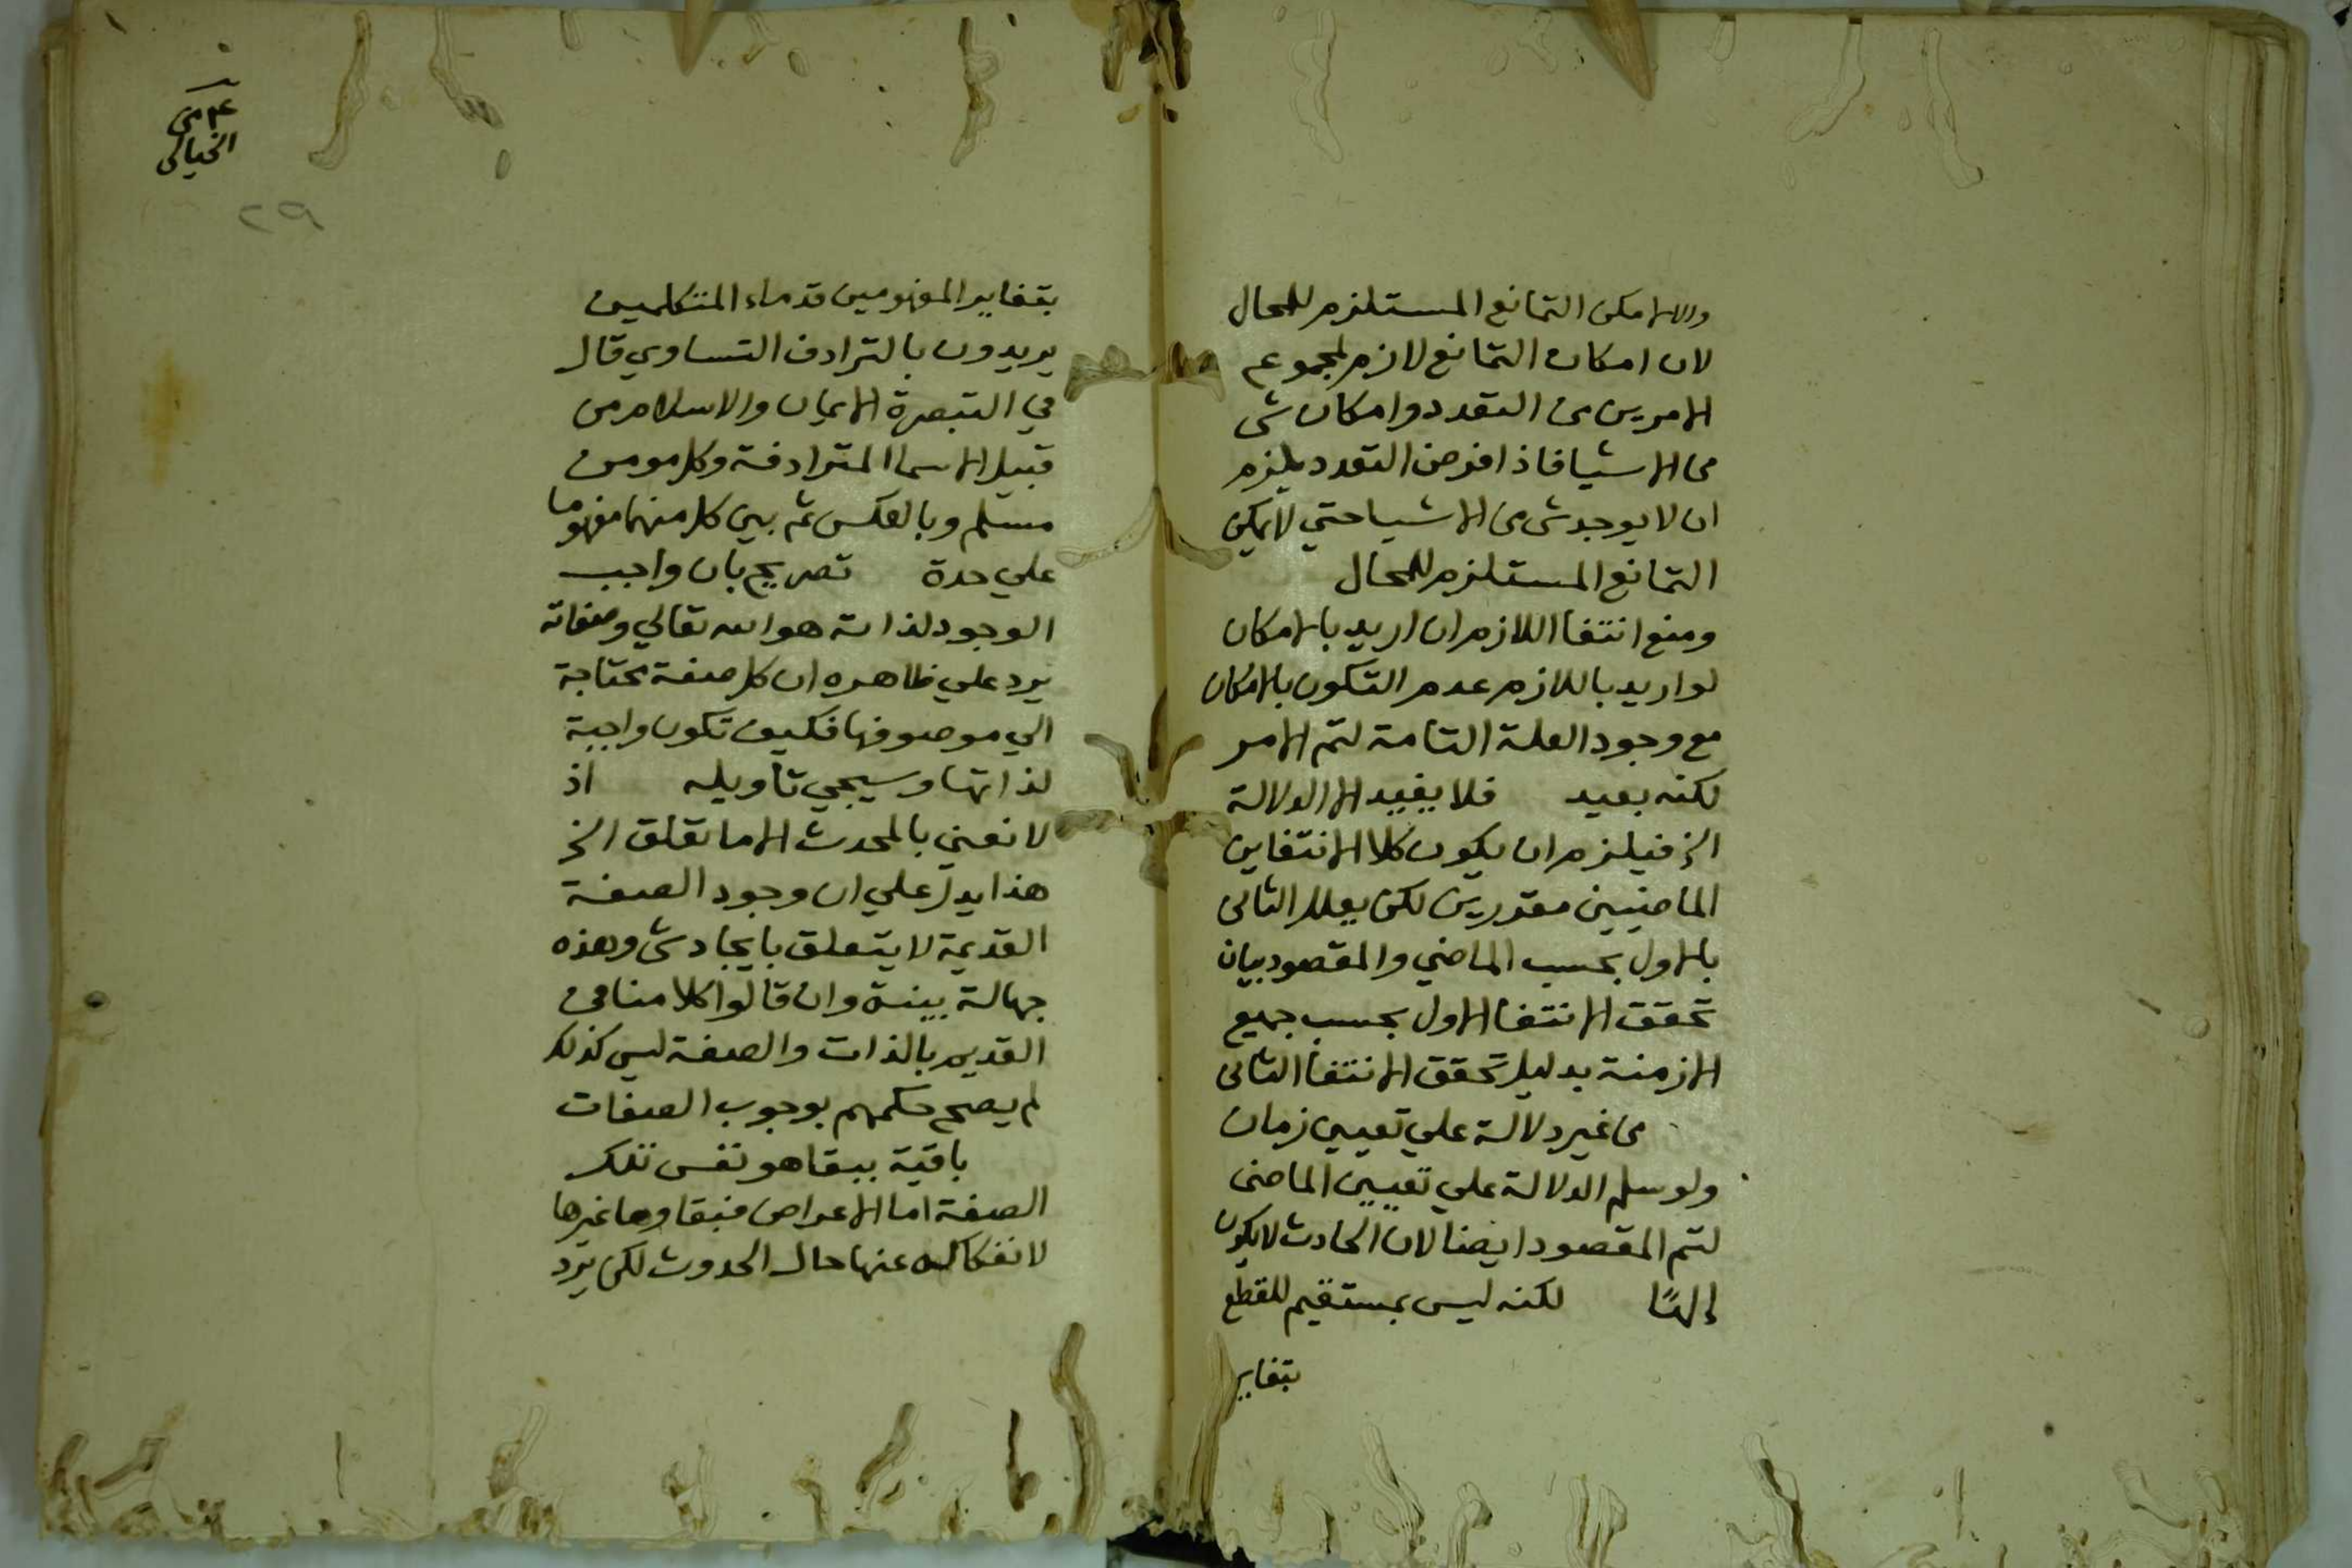 والا لامكن التمانع المستلزم للمحال
لان امكان التمانع لازم لمجموع
الامرين من التعدد وامكان شي
من الاشيا فاذا فرض التعدد يلزم
ان لا يوجد شي من الاشيا حتي لا يمكن
التمانع المستلزم للمحال
ومنع انتفا اللازم ان اريد بالامكان
لو اريد باللازم عدم التكون بالامكان
مع وجود العلة التامة لتم الامر
لكنه بعيد فلا يفيد الا الدلالة
الخ فيلزم ان يكون كلا الانتفاين
الماضيين مقررين لكن يعلل الثاني
بالاول بحسب الماضي والمقصود بيان
تحقق الانتفا الاول بحسب جميع
الازمنة بدليل تحقق الانتفا الثاني
من غير دلالة علي تعيين زمان
ولو سلم الدلالة علي تعيين الماضي
لتم المقصود ايضا لان الحادث لا يكون
إلهًا لكنه ليس بمستقيم للقطع
بتغاير
من
الخيالي
٢٩
بتغاير المفهومين قدماء المتكلمين
يريدون بالترادف التساوي قال
في التبصرة الايمان والاسلام من
قبيل الاسما المترادفة وكل مومن
مسلم وبالعكس ثم بين كل منهما مفهوما
علي حدة تصريح بان واجب
الوجود لذاته هو الله تعالي وصفاته
يرد علي ظاهره ان كل صفة محتاجة
الي موصوفها فكيف تكون واجبة
لذاتها وسيجي تاويله اذ
لا نعني بالمحدث الا ما تعلق الخ
هذا يدل علي ان وجود الصفة
القديمة لا يتعلق بايجاد شي وهذه
جهالة بينة وان قالوا كلامنا في
القديم بالذات والصفة ليس كذلك
لم يصح حكمهم بوجوب الصفات
باقية ببقا هو نفس تلك
الصفة اما الاعراض فبقاوها غيرها
لانفكاكه عنها حال الحدوث لكن يرد